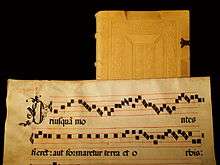 Priusquā mo ntes
fierēt: aut formaretur terra et o rbis: